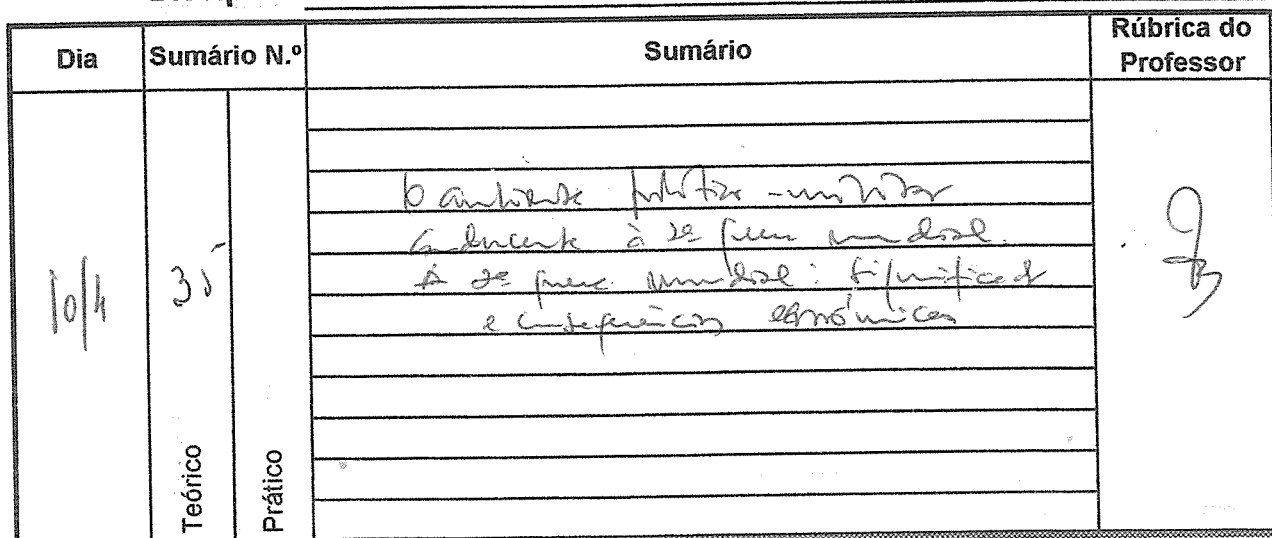 Dia
Sumário N.º
Sumário
Rúbrica do
Professor
10/4
35
O ambiente político-militar
conducente à 2ª guerra mundial.
A 2ª guerra mundial: significado
e consequências económicas
Teórico
Prático